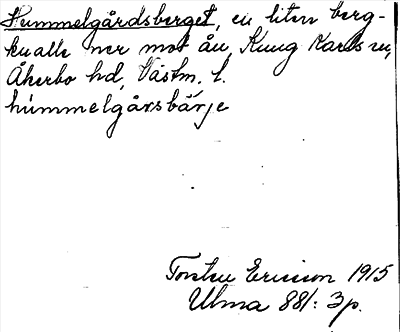 Hummelgårdsberget, en liten berg-
knalle ner mot ån, Kung Karls sn,
Åkerbo hd, Västm. l.
hummelgårsbärje
Torsten Ericson 1915
Ulma 881: 3p.